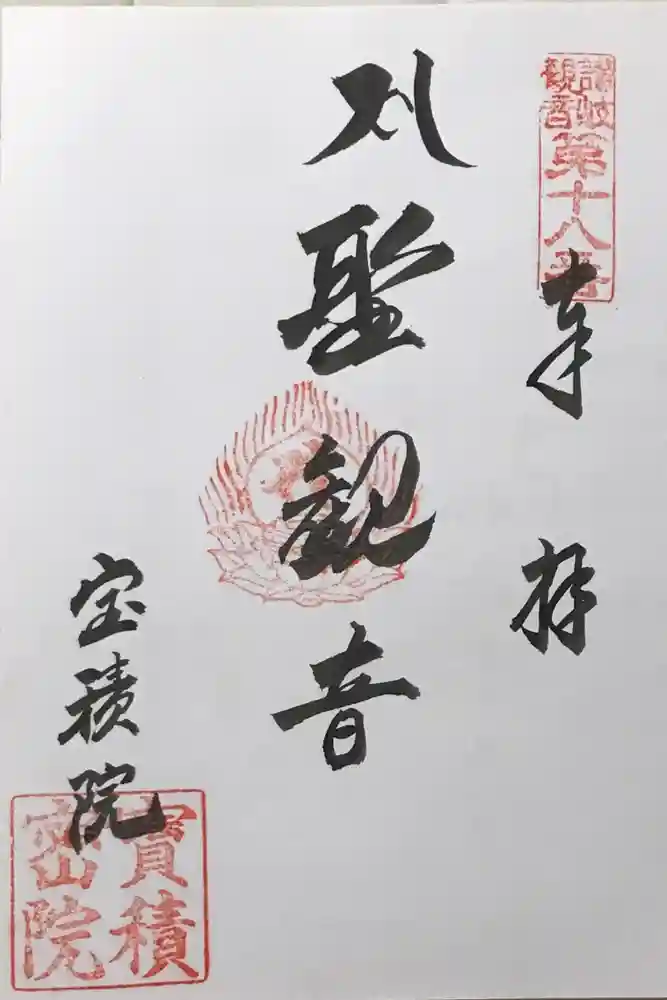 讃岐
観音
第十八番
奉拝
聖観音
宝積院
寳積
密院